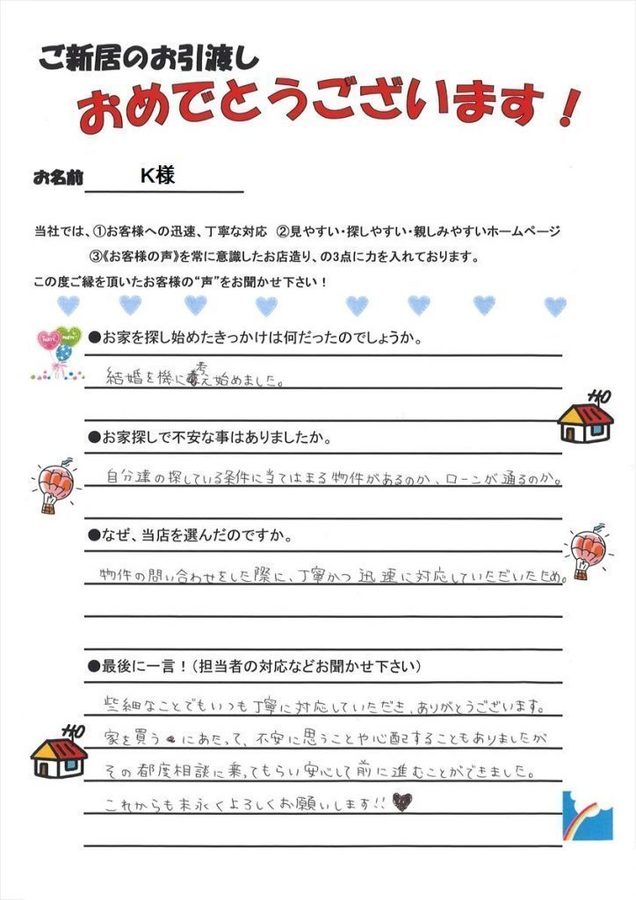 ご新居のお引渡し
おめでとうございます！
お名前 K様
当社では、①お客様への迅速、丁寧な対応 ②見やすい・探しやすい・親しみやすいホームページ
③《お客様の声》を常に意識したお店造り、の3点に力を入れております。
この度ご縁を頂いたお客様の“声”をお聞かせ下さい！
●お家を探し始めたきっかけは何だったのでしょうか。
結婚を機に考え始めました。
●お家探しで不安な事はありましたか。
自分達の探している条件に当てはまる物件があるのか、ローンが通るのか。
●なぜ、当店を選んだのですか。
物件の問い合わせをした際に、丁寧かつ迅速に対応していただいたため。
●最後に一言！（担当者の対応などお聞かせ下さい）
些細なことでもいつも丁寧に対応していただき、ありがとうございます。
家を買うにあたって、不安に思うことや心配することもありましたが
その都度相談に乗ってもらい安心して前に進むことができました。
これからも末永くよろしくお願いします!!